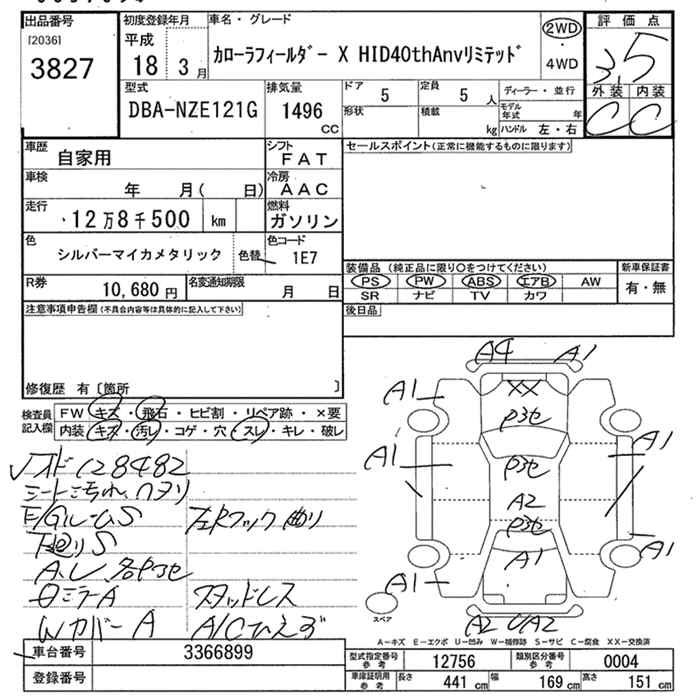 出品番号
[2036]
3827
初度登録年月
平成
18 3月
車名・グレード
カローラフィールダー X HID40thAnvリミテッド
2WD
4WD
評価点
3.5
外装 内装
C C
型式
DBA-NZE121G
排気量
1496
CC
ドア
5
定員
5 人
形状
積載
kg
ディーラー・並行
モデル年式 年
ハンドル 左・右
車歴
自家用
シフト
FAT
車検
年 月( 日)
冷房
AAC
走行
12万8千500 km
燃料
ガソリン
色
シルバーマイカメタリック
色替
色コード
1E7
R券
10,680円
名変通知期限
月 日
セールスポイント(正常に機能するものに限ります)
装備品 (純正品に限り○をつけてください)
PS PW ABS エアB AW
SR ナビ TV カワ
新車保証書
有・無
後日品
注意事項申告欄(不具合内容等は具体的に記入して下さい)
修復歴 有〔箇所 〕
検査員記入欄
FW キズ・飛石・ヒビ割・リペア跡・×要
内装 キズ・汚レ・コゲ・穴・スレ・キレ・破レ
メオド 128482
シート汚れ、ハヌリ
E/GルームS
左Rフック曲り
下廻りS
A.L 各P3セ
ロミラーA
スタッドレス
WカバーA
A/Cひえず
A4 A1
A1
XX
P3セ
A1
P3セ
A1
A2
P3セ
A1
A1
A1
A2 U A2
スペア
A-キズ E-エクボ U-凹み W-補修跡 S-サビ C-腐食 XX-交換済
車台番号
3366899
登録番号
型式指定番号
参考
12756
類別区分番号
参考
0004
車庫証明用
参考
長さ
441 cm
幅
169 cm
高さ
151 cm